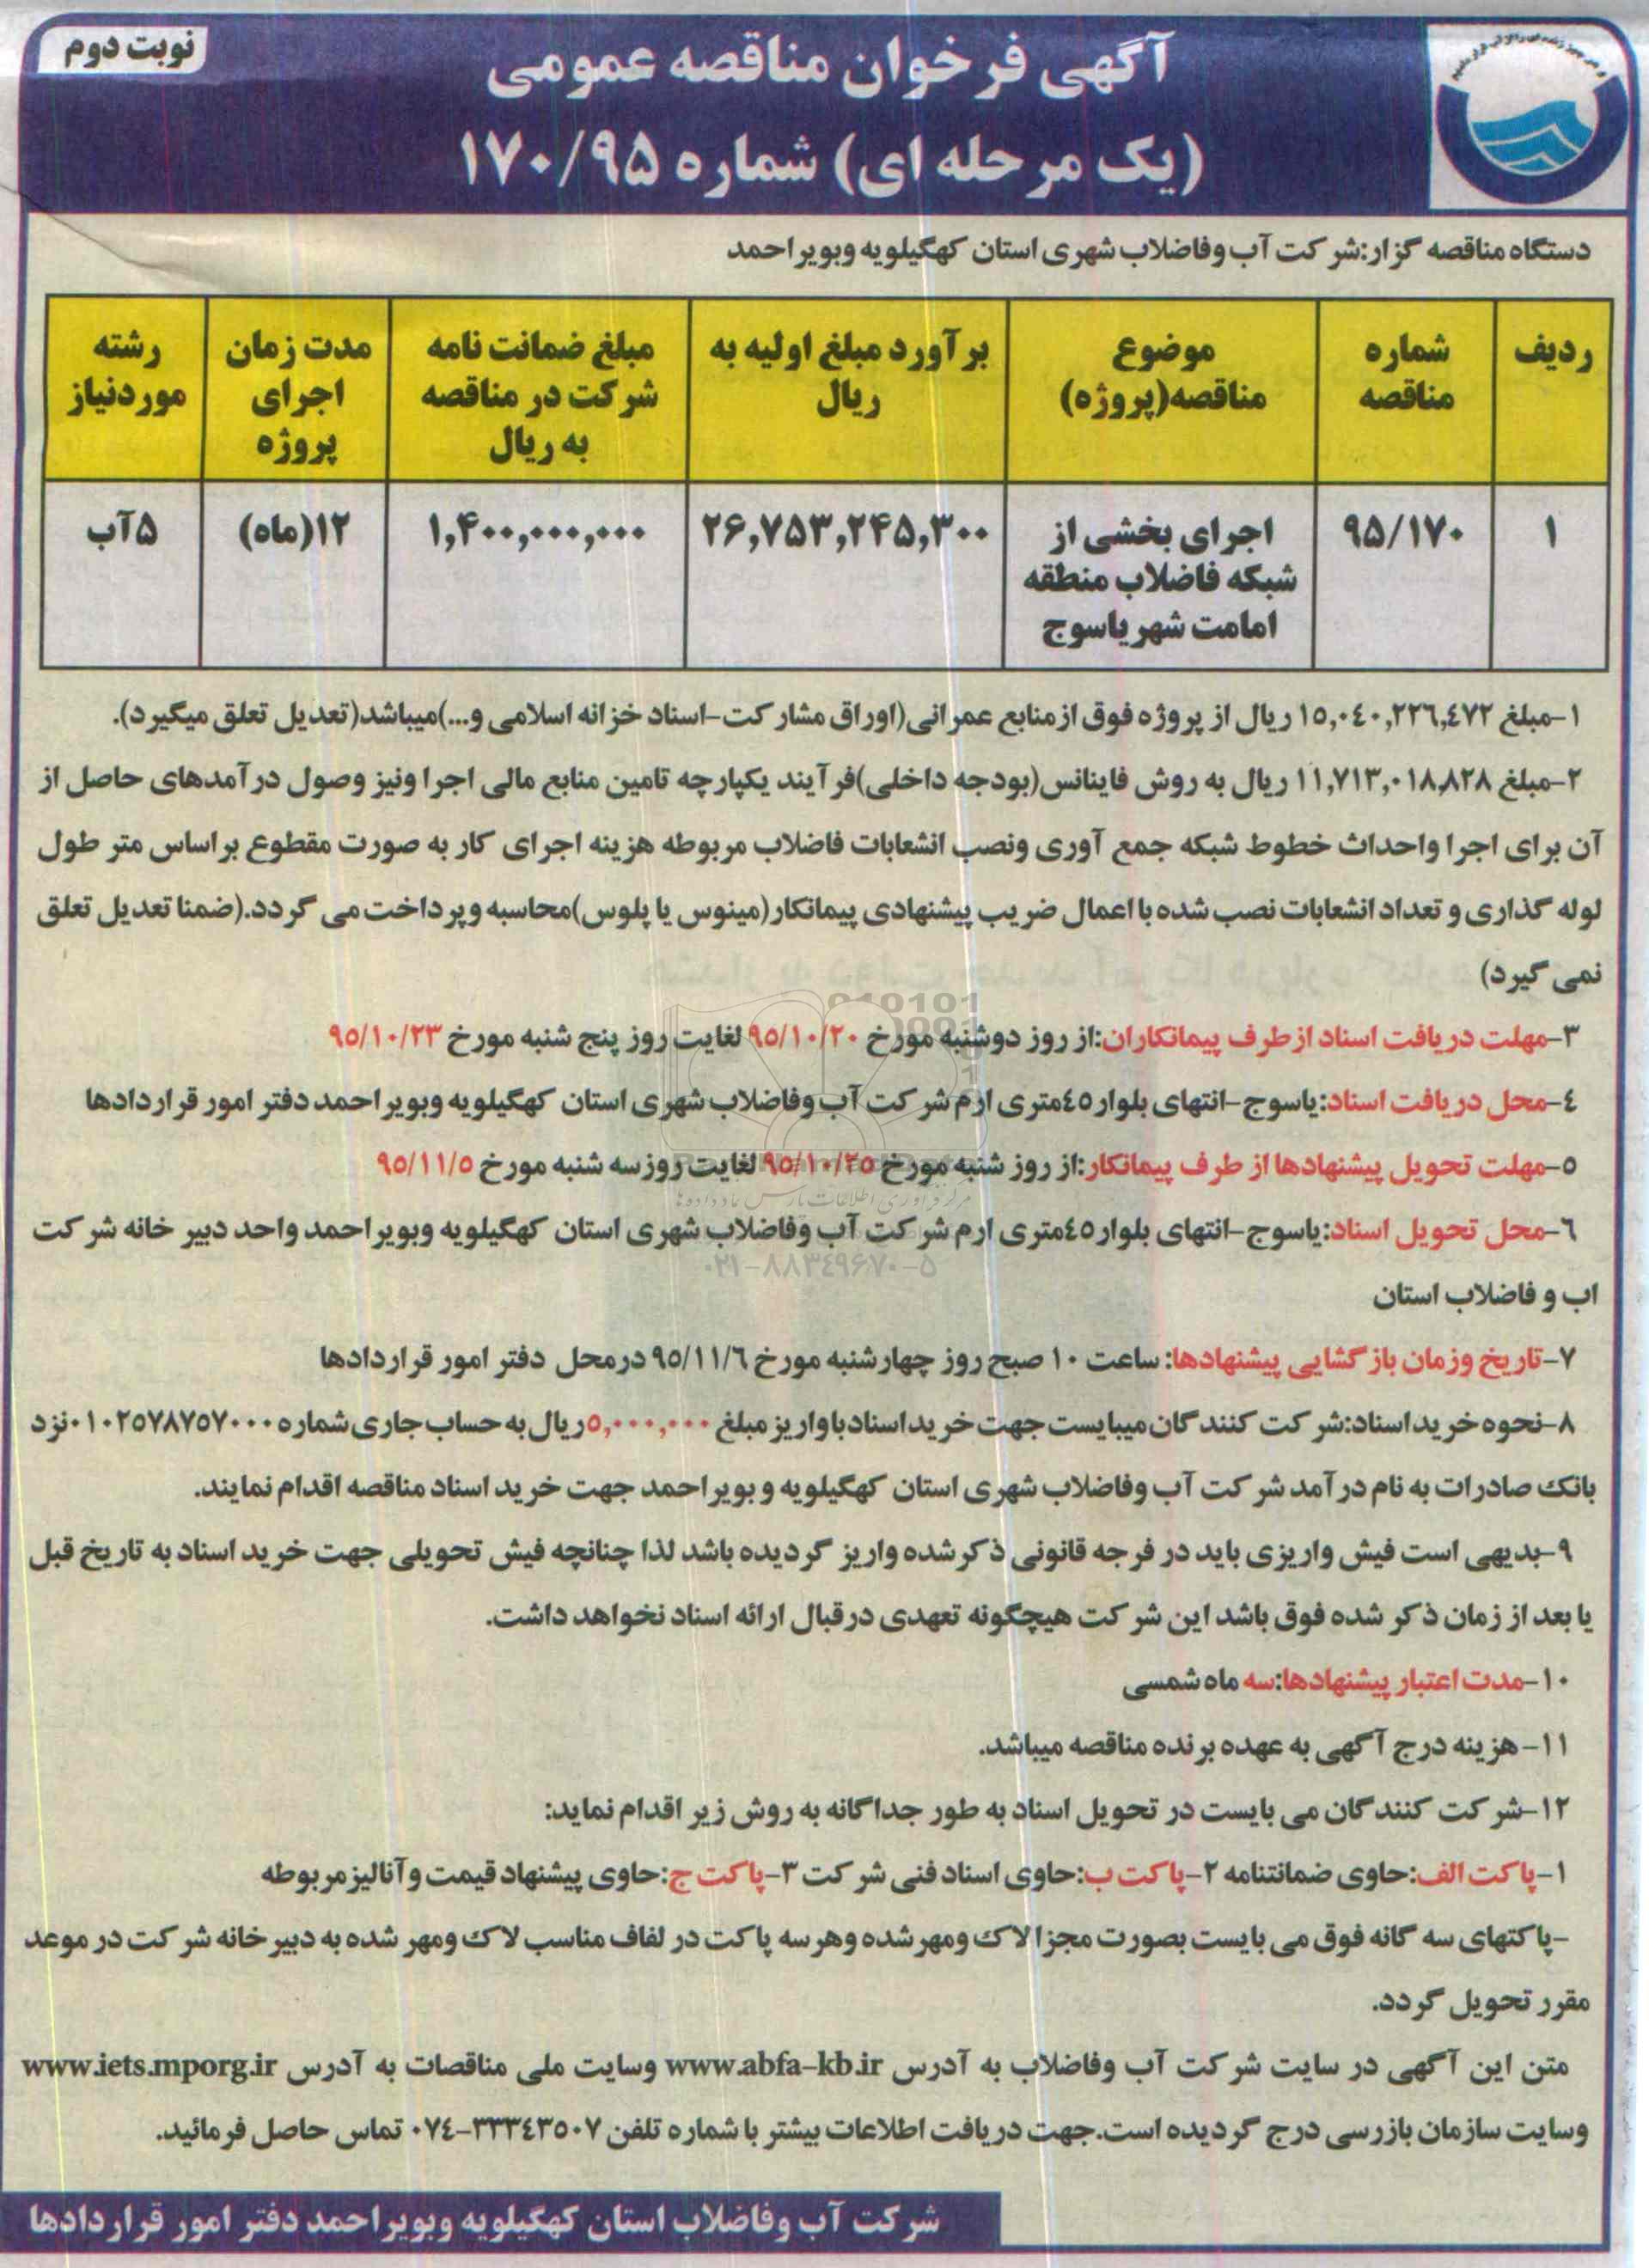 نوبت دوم
آگهی فرخوان مناقصه عمومی
(یک مرحله ای) شماره ۱۷۰/۹۵
دستگاه مناقصه گزار:شرکت آب وفاضلاب شهری استان کهگیلویه وبویراحمد
ردیف
شماره
مناقصه
موضوع
مناقصه(پروژه)
برآورد مبلغ اولیه به
ریال
مبلغ ضمانت نامه
شرکت در مناقصه
به ریال
مدت زمان
اجرای
پروژه
رشته
موردنیاز
۱
۹۵/۱۷۰
اجرای بخشی از
شبکه فاضلاب منطقه
امامت شهر یاسوج
۲۶,۷۵۳,۲۴۵,۳۰۰
۱,۴۰۰,۰۰۰,۰۰۰
۱۲(ماه)
۵آب
۱-مبلغ ۱۵,۰٤۰,۲۲٦,٤۷۲ ریال از پروژه فوق ازمنابع عمرانی(اوراق مشارکت-اسناد خزانه اسلامی و...)میباشد(تعدیل تعلق میگیرد).
۲-مبلغ ۱۱,۷۱۳,۰۱۸,۸۲۸ ریال به روش فاینانس(بودجه داخلی)فرآیند یکپارچه تامین منابع مالی اجرا ونیز وصول درآمدهای حاصل از
آن برای اجرا واحداث خطوط شبکه جمع آوری ونصب انشعابات فاضلاب مربوطه هزینه اجرای کار به صورت مقطوع براساس متر طول
لوله گذاری و تعداد انشعابات نصب شده با اعمال ضریب پیشنهادی پیمانکار(مینوس یا پلوس)محاسبه وپرداخت می گردد.(ضمنا تعدیل تعلق
نمی گیرد)
۳-مهلت دریافت اسناد ازطرف پیمانکاران:از روز دوشنبه مورخ ۹۵/۱۰/۲۰ لغایت روز پنج شنبه مورخ ۹۵/۱۰/۲۳
٤-محل دریافت اسناد:یاسوج-انتهای بلوار٤۵متری ارم شرکت آب وفاضلاب شهری استان کهگیلویه وبویراحمد دفتر امور قراردادها
۵-مهلت تحویل پیشنهادها از طرف پیمانکار:از روز شنبه مورخ ۹۵/۱۰/۲۵ لغایت روزسه شنبه مورخ ۹۵/۱۱/۵
٦-محل تحویل اسناد:یاسوج-انتهای بلوار٤۵متری ارم شرکت آب وفاضلاب شهری استان کهگیلویه وبویراحمد واحد دبیر خانه شرکت
۰۲۱-۸۸۳۴۹۶۷۰-۵
اب و فاضلاب استان
۷-تاریخ وزمان بازگشایی پیشنهادها: ساعت ۱۰ صبح روز چهارشنبه مورخ ۹۵/۱۱/٦ درمحل دفتر امور قراردادها
۸-نحوه خرید اسناد:شرکت کنندگان میبایست جهت خرید اسناد باواریز مبلغ ۵,۰۰۰,۰۰۰ریال به حساب جاری شماره ۰۱۰۲۵۷۸۷۵۷۰۰۰نزد
بانک صادرات به نام درآمد شرکت آب وفاضلاب شهری استان کهگیلویه و بویراحمد جهت خرید اسناد مناقصه اقدام نمایند.
۹-بدیهی است فیش واریزی باید در فرجه قانونی ذکرشده واریز گردیده باشد لذا چنانچه فیش تحویلی جهت خرید اسناد به تاریخ قبل
یا بعد از زمان ذکر شده فوق باشد این شرکت هیچگونه تعهدی درقبال ارائه اسناد نخواهد داشت.
۱۰-مدت اعتبار پیشنهادها:سه ماه شمسی
۱۱-هزینه درج آگهی به عهده برنده مناقصه میباشد.
۱۲-شرکت کنندگان می بایست در تحویل اسناد به طور جداگانه به روش زیر اقدام نماید:
۱-پاکت الف:حاوی ضمانتنامه ۲-پاکت ب:حاوی اسناد فنی شرکت ۳-پاکت ج:حاوی پیشنهاد قیمت وآنالیز مربوطه
-پاکتهای سه گانه فوق می بایست بصورت مجزا لاک ومهرشده وهرسه پاکت در لفاف مناسب لاک ومهر شده به دبیرخانه شرکت در موعد
مقرر تحویل گردد.
متن این آگهی در سایت شرکت آب وفاضلاب به آدرس www.abfa-kb.ir وسایت ملی مناقصات به آدرس www.iets.mporg.ir
وسایت سازمان بازرسی درج گردیده است.جهت دریافت اطلاعات بیشتر با شماره تلفن ۳۳۳٤۳۵۰۷-۰۷٤ تماس حاصل فرمائید.
شرکت آب وفاضلاب استان کهگیلویه وبویراحمد دفتر امور قراردادها